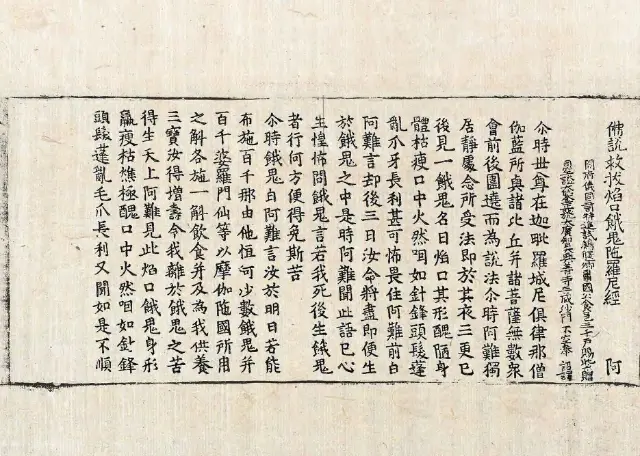 佛說救拔焰口餓鬼陁羅尼經 阿
開府儀同三司特進試鴻臚卿肅國公食邑三千戶賜紫贈
司空謚大鑒正号大廣智大興善寺三藏沙門不空奉 詔譯
尒時世尊在迦毗羅城尼俱律那僧
伽藍所與諸比丘并諸菩薩無數衆
會前後圍遶而為說法尒時阿難獨
居靜處念所受法即於其夜三更已
後見一餓鬼名曰焰口其形醜陋身
體枯瘦口中火然咽如針鋒頭髮蓬
亂爪牙長利甚可怖畏住阿難前白
阿難言却後三日汝命將盡即便生
於餓鬼之中是時阿難聞此語已心
生惶怖問餓鬼言若我死後生餓鬼
者行何方便得免斯苦
尒時餓鬼白阿難言汝於明日若能
布施百千那由他恒河沙數餓鬼并
百千婆羅門仙等以摩伽陁國所用
之斛各施一斛飲食并及為我供養
三寶汝得增壽令我離於餓鬼之苦
得生天上阿難見此焰口餓鬼身形
羸瘦枯燋極醜口中火然咽如針鋒
頭髮蓬亂毛爪長利又聞如是不順